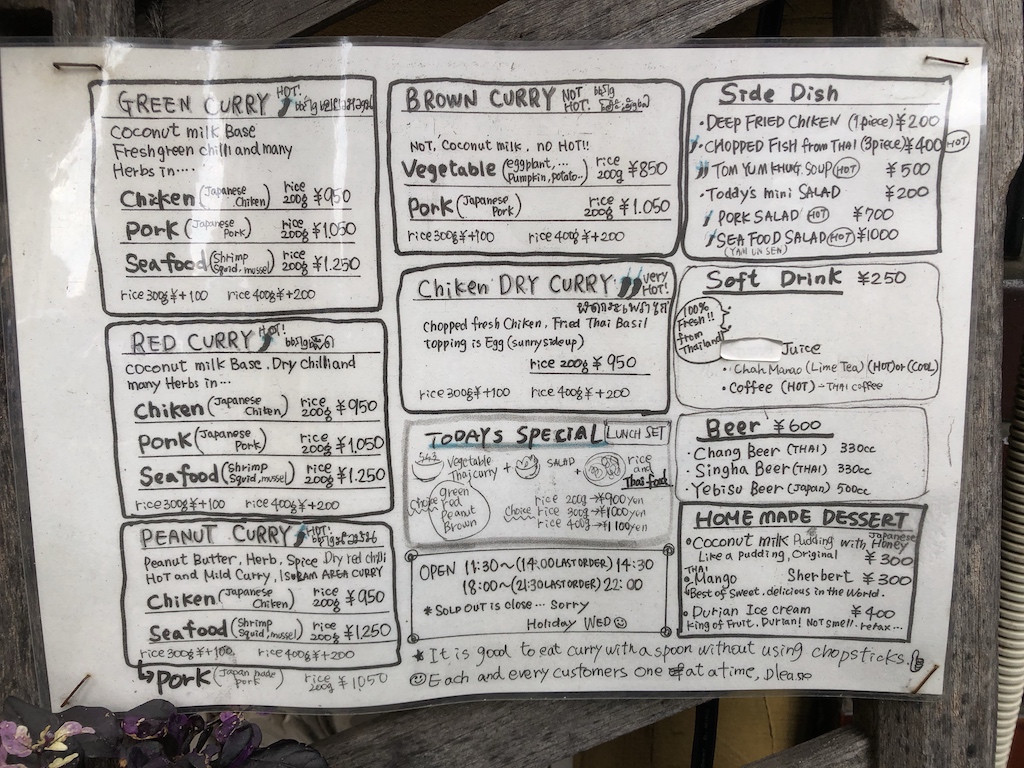 GREEN CURRY HOT!
Coconut milk Base
Fresh green chilli and many
Herbs in....
Chiken (Japanese Chiken) rice 200g ¥950
Pork (Japanese Pork) rice 200g ¥1.050
Seafood (Shrimp Squid, mussel) rice 200g ¥1.250
rice 300g ¥+100 rice 400g ¥+200
RED CURRY HOT!
Coconut milk Base. Dry Chilli and
many Herbs in...
Chiken (Japanese Chiken) rice 200g ¥950
Pork (Japanese Pork) rice 200g ¥1,050
Seafood (Shrimp Squid, mussel) rice 200g ¥1.250
rice 300g ¥+100 rice 400g ¥+200
PEANUT CURRY HOT!
Peanut Butter, Herb, Spice Dry red chilli
HOT and Mild Curry, ISARAM AREA CURRY
Chiken (Japanese Chiken) rice 200g ¥950
Seafood (Shrimp Squid, mussel) rice 200g ¥1.250
rice 300g ¥+100 rice 400g ¥+200
Pork (Japan made pork) rice 200g ¥1050
BROWN CURRY NOT HOT!
NOT, Coconut milk, no HOT!!
Vegetable (eggplant,... Pumpkin, potato..) rice 200g ¥850
Pork (Japanese Pork) rice 200g ¥1.050
rice 300g ¥+100 rice 400g ¥+200
Chiken DRY CURRY very HOT!
Chopped fresh Chiken, Fried Thai Basil
topping is Egg (sunny side up)
rice 200g ¥950
rice 300g ¥+100 rice 400g ¥+200
TODAYS SPECIAL LUNCH SET
Vegetable Thai curry + SALAD + rice and Thai food
Choice green red Peanut Brown
Choice
rice 200g → ¥900 yen
rice 300g → ¥1000 yen
rice 400g → ¥1100 yen
OPEN 11:30~(14:00 LAST ORDER) 14:30
18:00~(21:30 LAST ORDER) 22:00
* SOLD OUT is close... Sorry
Holiday WED
Side Dish
・DEEP FRIED CHIKEN (1piece) ¥200
・CHOPPED FISH from THAI (3piece) ¥400 HOT
TOM YUM KHUG SOUP (HOT) ¥500
・Toddy's mini SALAD ¥200
PORK SALAD (HOT) ¥700
SEA FOOD SALAD (HOT) ¥1000
(YAM UN SEN)
Soft Drink ¥250
100% Fresh!! from Thailand
Juice
・Chah Manao (Lime Tea) (HOT) or (COOL)
・Coffee (HOT) - THAI coffee
Beer ¥600
・Chang Beer (THAI) 330cc
・Singha Beer (THAI) 330cc
・Yebisu Beer (Japan) 500cc
HOME MADE DESSERT
・Coconut milk Pudding with Japanese Honey
Like a pudding, Original ¥300
・THAI Mango Sherbert ¥300
Best of Sweet. delicious in the World.
・Durian Ice cream ¥400
King of Fruit. Durian! Not smell. relax...
* It is good to eat curry with a spoon without using chopsticks.
Each and every customers one at a time, Please